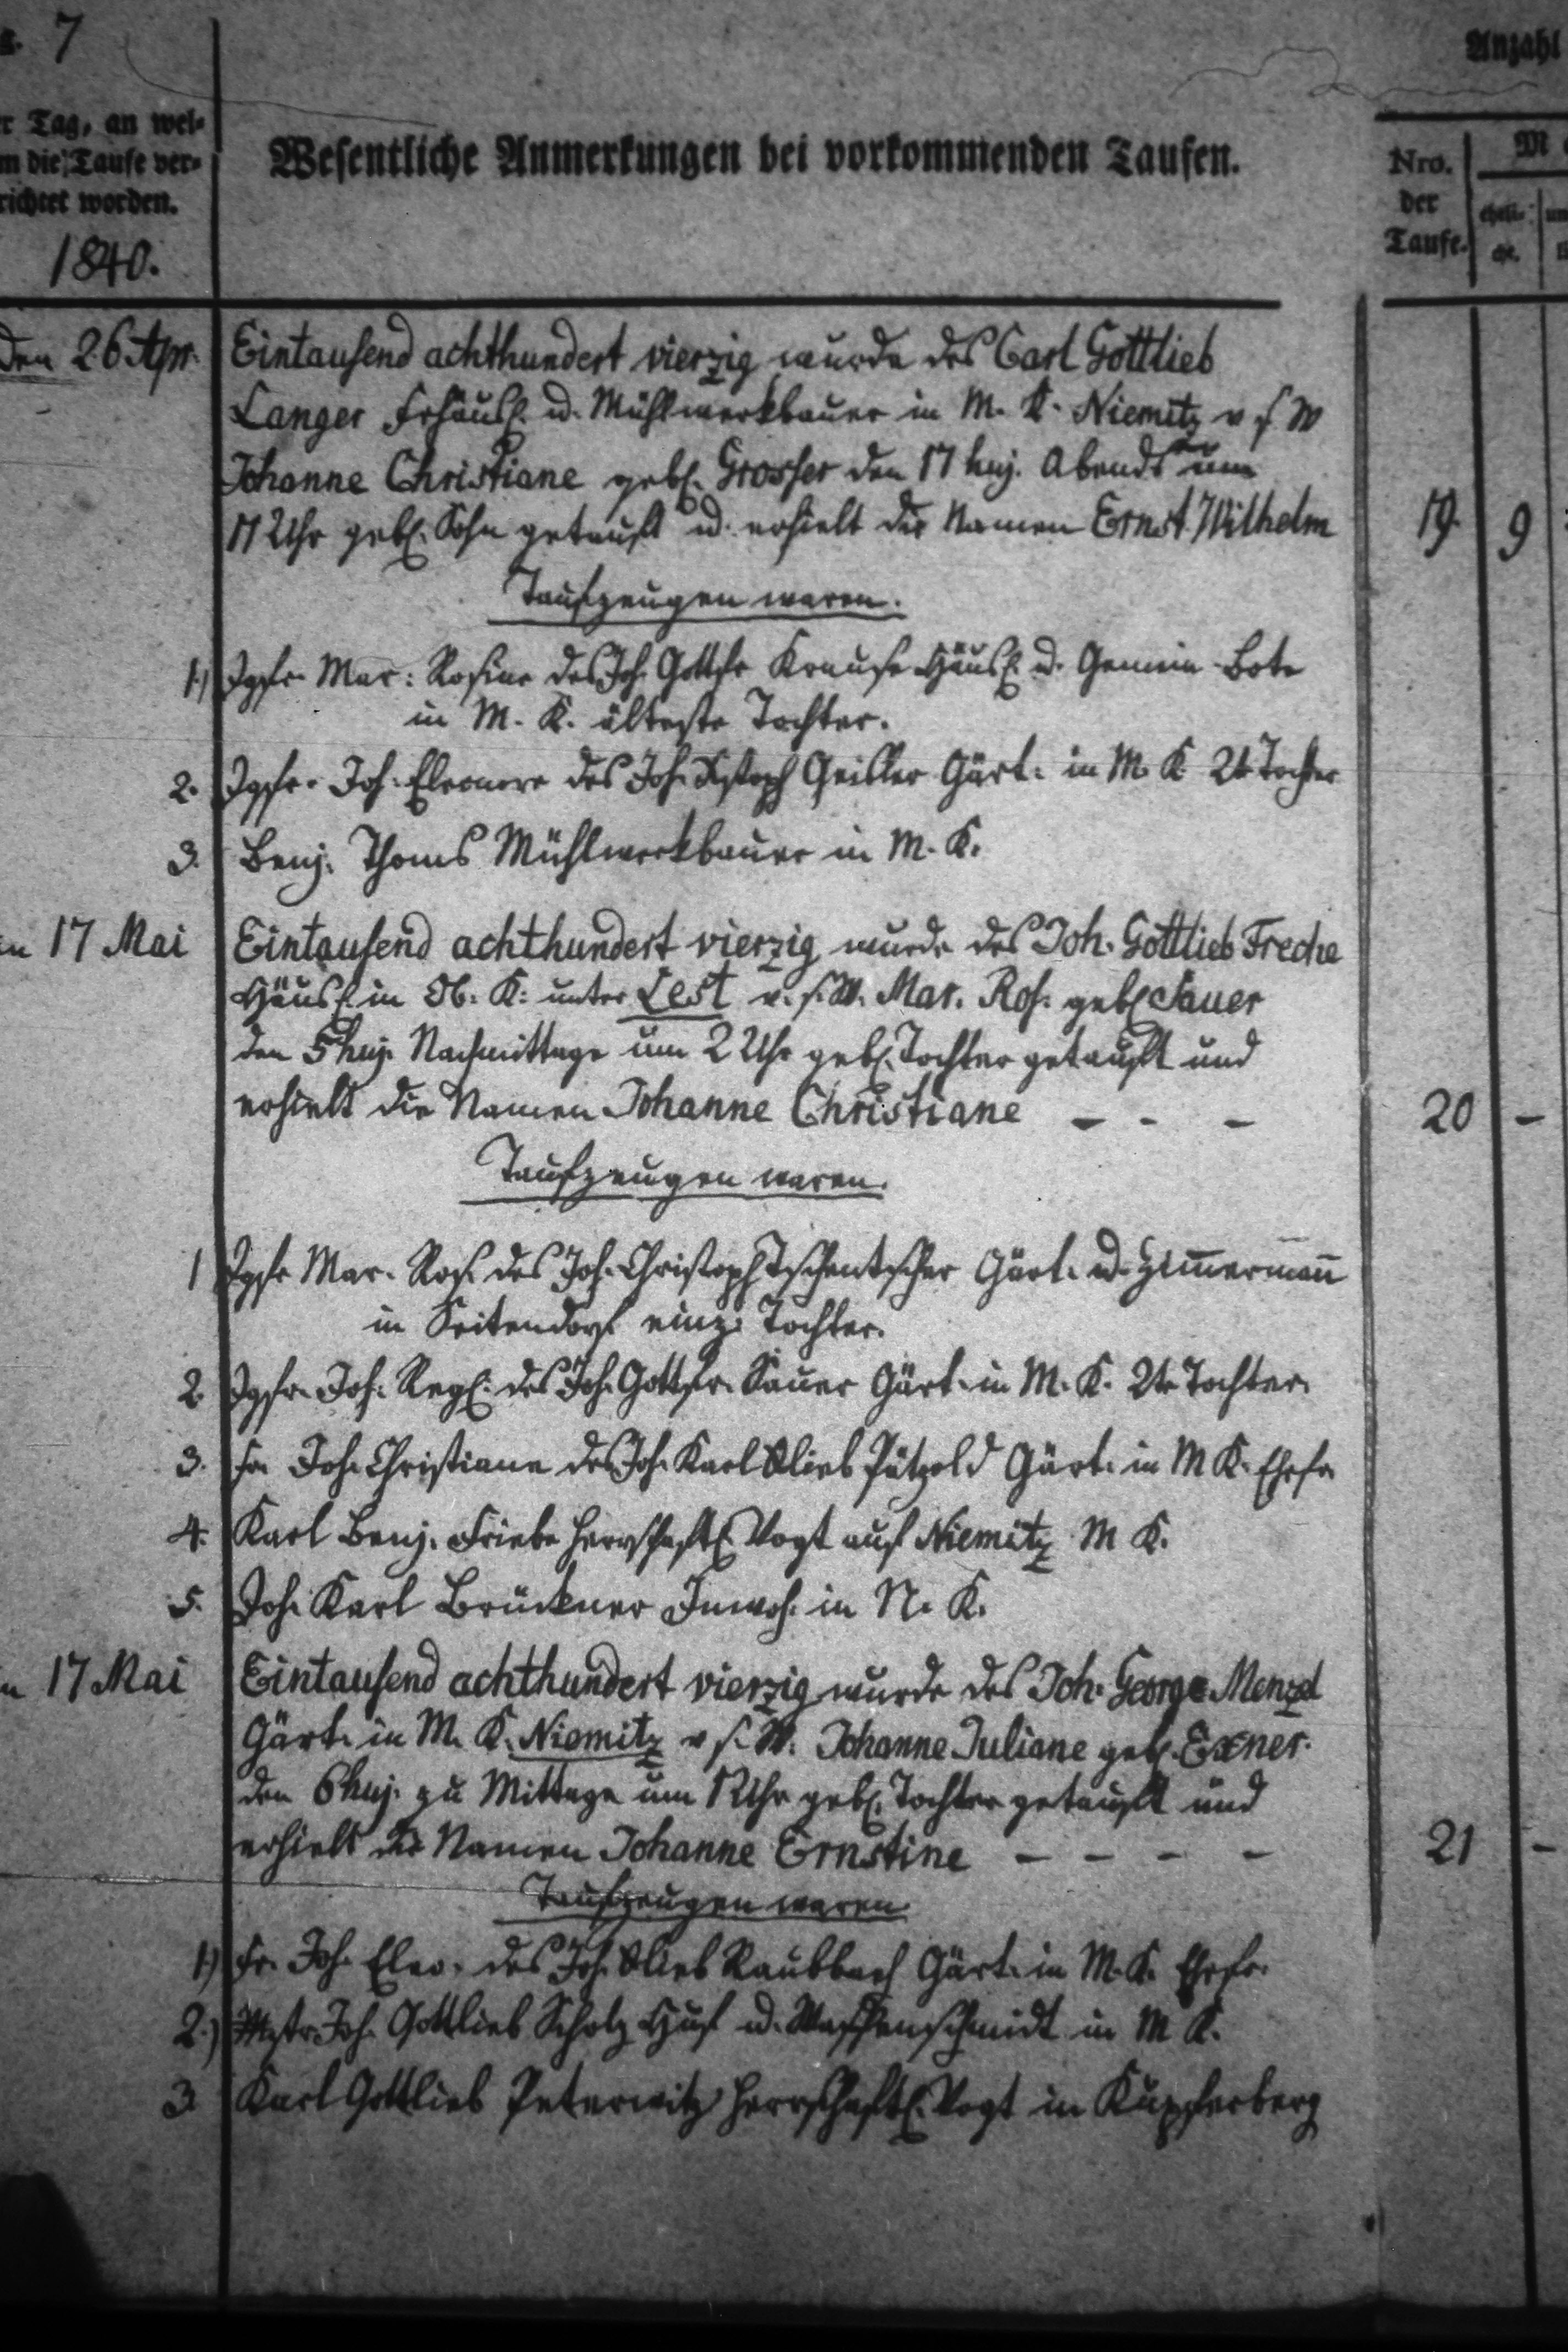 7
Anzahl
r Tag, an wel-
m die Taufe ver-
richtet worden.
1840.
Wesentliche Anmerkungen bei vorkommenden Taufen.
Nro.
der
Taufe.
eheli-
che.
den 26 Apr.
Eintausend achthundert vierzig wurde des Carl Gottlieb
Langer Frhäusl. u. Mühlwerkbauer in M. K. Niemitz v s. W
Johanne Christiane gebl. Grosser den 17 huj. Abends um
11 Uhr gebl. Sohn getauft u. erhielt die Namen Ernst Wilhelm
19. 9
Taufzeugen waren.
1.) Jgfr. Mar: Rosine des Joh. Gottfr Krause Häusl. u. Gemein-Bote
in M. K. älteste Tochter.
2. Jgfr. Joh. Eleonore des Joh. Geisler Gärt. in M. K 2te Tochter
3. Benj. Thoms Mühlwerkbauer in M. K.
n 17 Mai
Eintausend achthundert vierzig wurde des Joh. Gottlieb Freche
Häusl. in Ob. K. unter Lest v. s. W. Mar. Ros. gebl Sauer
den 5 huj. Nachmittage um 2 Uhr gebl. Tochter getauft und
erhielt die Namen Johanne Christiane - - -
20 -
Taufzeugen waren.
1 Jgfr Mar. Ros. des Joh. Christoph Tschentscher Gärt. u. Zim̅erman̅
in Seitendorf einz. Tochter.
2. Jgfr. Joh. Regl. des Joh. Gottfr. Sauer Gärt. in M. K. 2te Tochter.
3. Fr. Joh. Christiane des Joh. Karl Glieb Pätzold Gärt. in M K. Ehefr.
4. Karl Benj. Friebe herrschaftl. Vogt auf Niemitz M K.
5. Joh. Karl Brückner Inwoh. in N. K.
n 17 Mai
Eintausend achthundert vierzig wurde des Joh. George Menzel
Gärt. in M. K. Niemitz v s. W. Johanne Juliane geb. Exner.
den 6 huj. zu Mittage um Uhr gebl. Tochter getauft und
erhielt die Namen Johanne Ernstine - - - -
21 -
Taufzeugen waren
1.) Fr. Joh. Eleo. des Joh. Glieb Raubbach Gärt. in M. K. Ehefr.
2.) Mstr. Joh. Gottlieb Scholz Huf u. Waffenschmidt in M K.
3 Karl Gottlieb Peterwitz herrschaftl. Vogt in Kupferberg